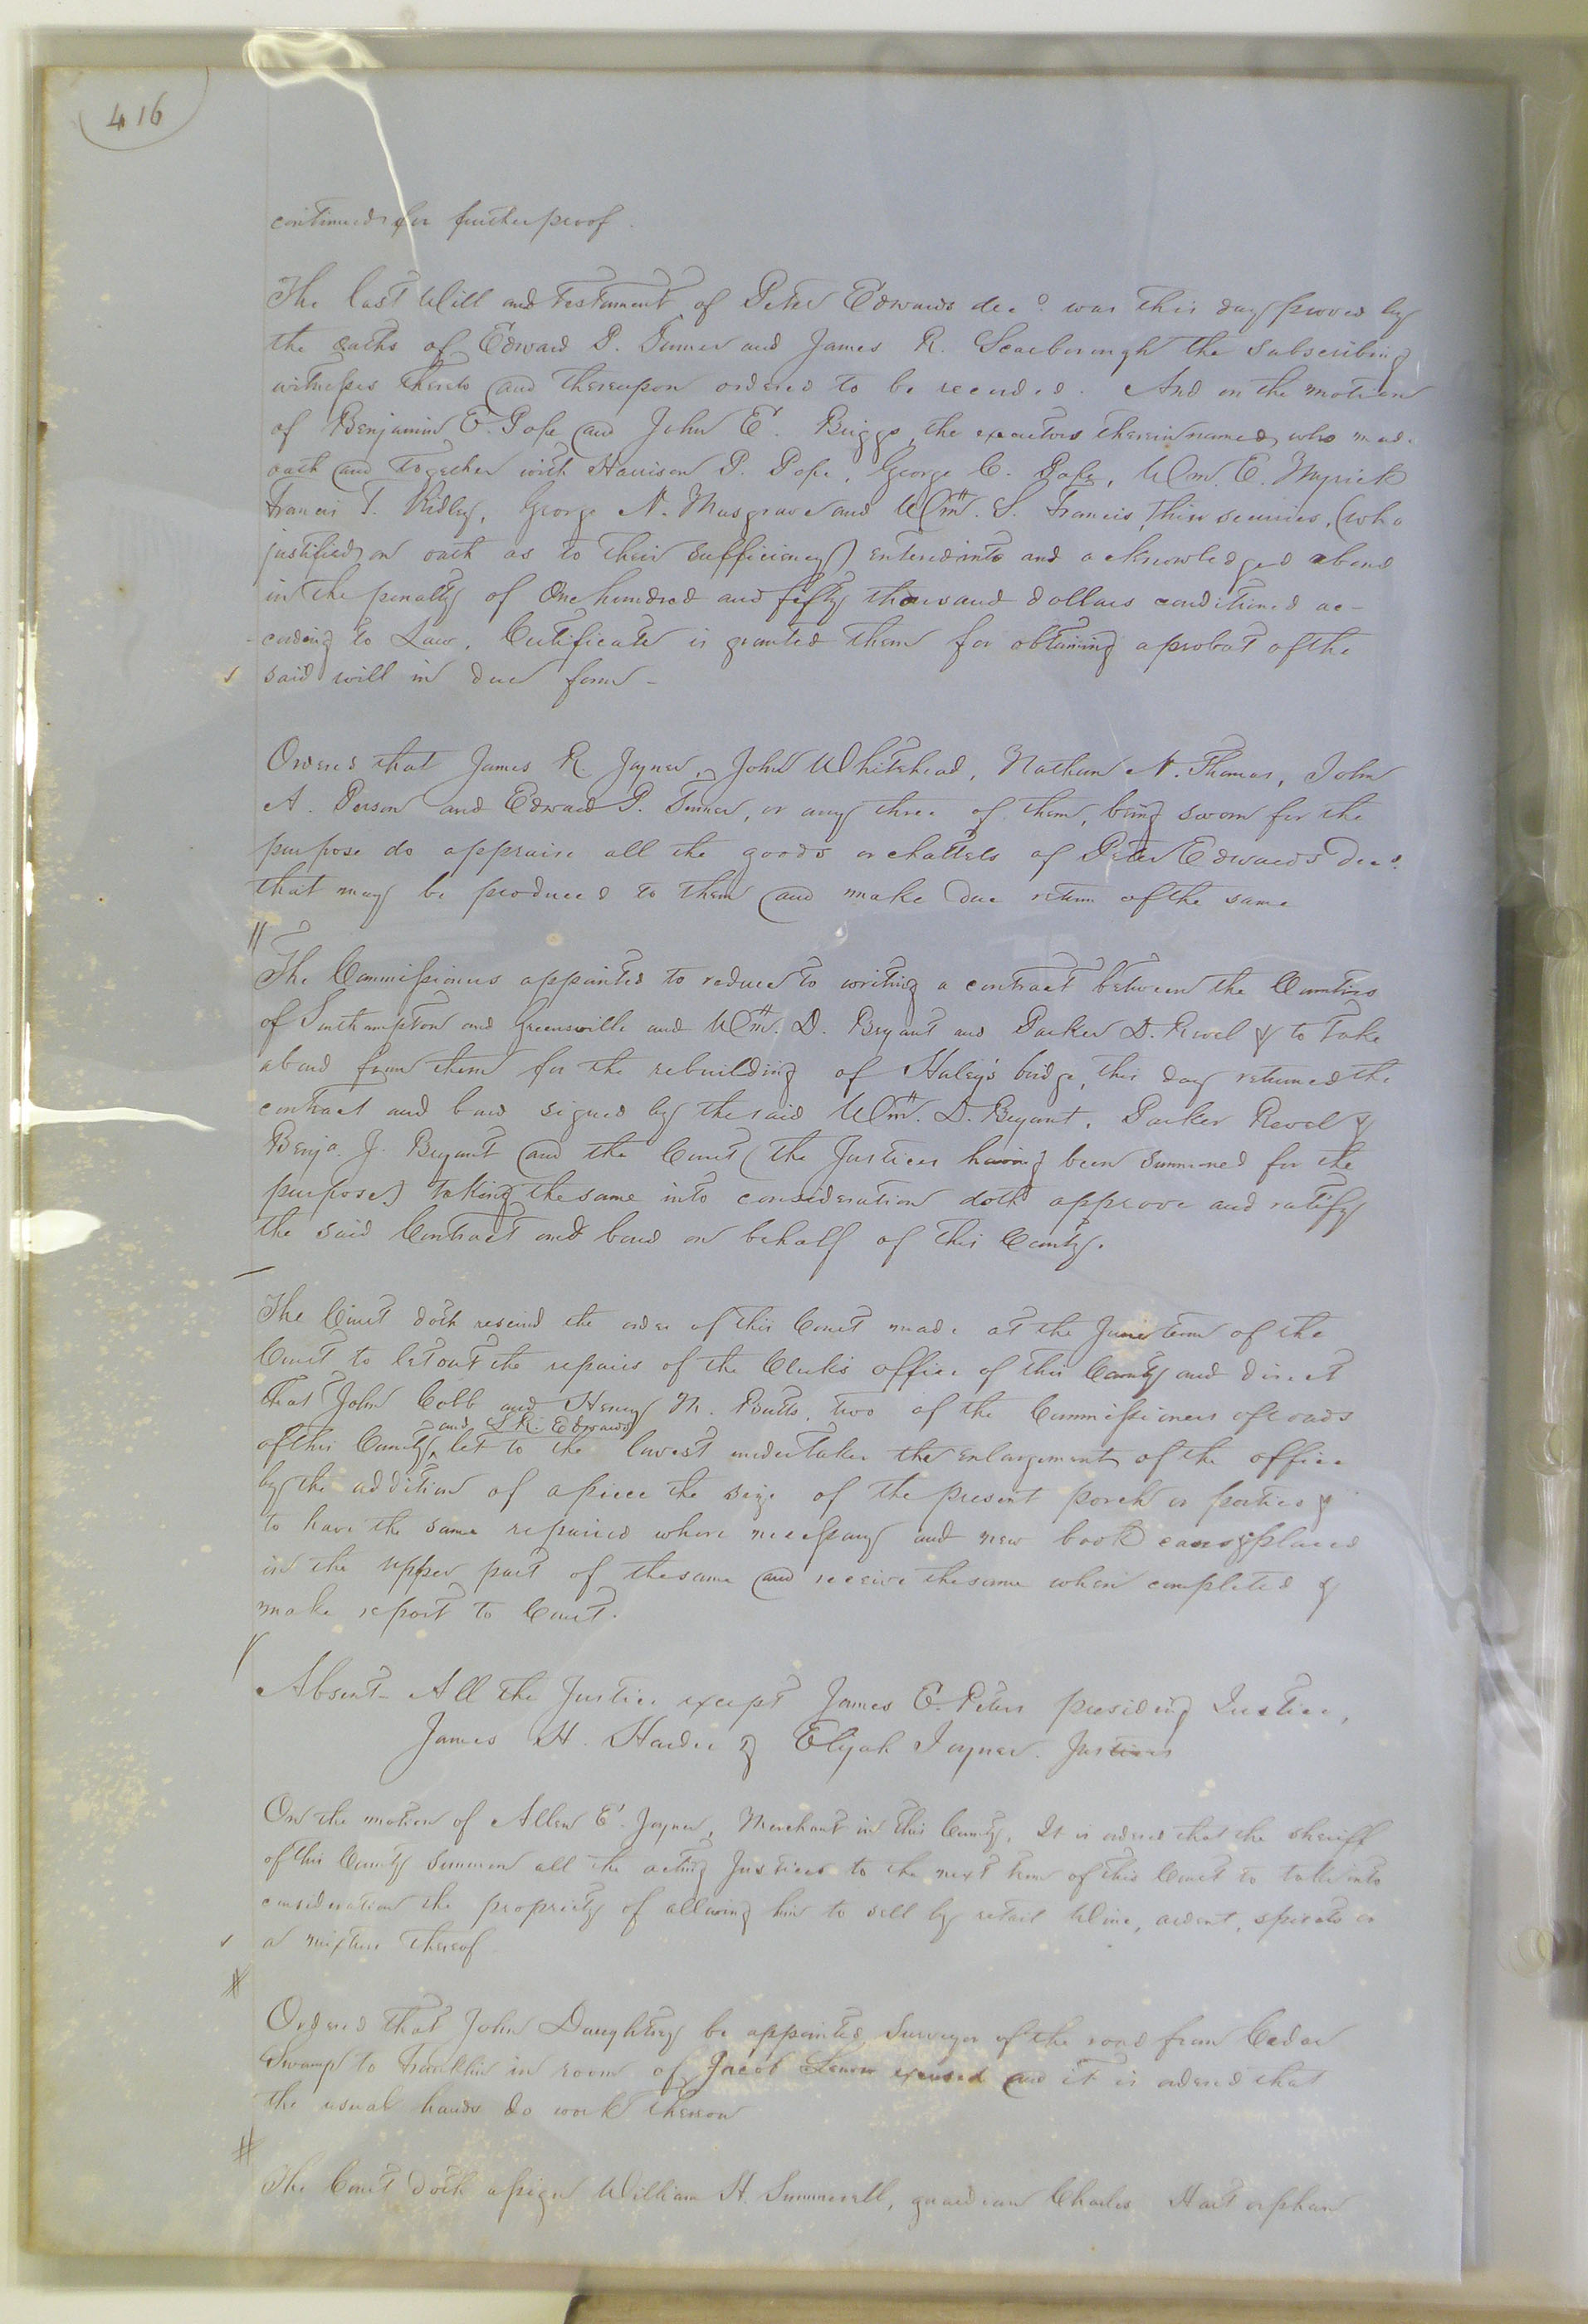 416
continued for further proof.
The last Will and Testament of Peter Edwards decd. was this day proved by
the oaths of Edward P. Turner and James R. Scarborough the subscribing
witnesses thereto and thereupon ordered to be recorded. And on the motion
of Benjamin E. Pope and John E. Briggs, the executors therein named, who made
oath and together with Harrison P. Pope, George C. Pope, Wm. E. Myrick
Francis T. Ridley, George N. Musgrave and Wm. S. Francis, their securies, (who
justified on oath as to their sufficiency) entered into and acknowledged a bond
in the penalty of One hundred and fifty thousand dollars conditioned ac-
-cording to Law. Certificate is granted them for obtaining a probat of the
said will in due form -
Ordered that James R. Joyner, John Whitehead, Nathan N. Thomas, John
A. Person and Edward P. Turner, or any three of them, being sworn for the
purpose do appraise all the goods or chattels of Peter Edwards Decd.
that may be produced to them and make due return of the same
The Commissioners appointed to reduce to writing a contract between the Counties
of Southampton and Greensville and Wm. D. Bryant and Parker D. Revel & to take
a bond from them for the rebuilding of Haley's bridge, this day returned the
contract and bond signed by the said Wm. D. Bryant, Parker Revel &
Benja. J. Bryant and the Court (the Justices having been summoned for the
purpose) taking the same into consideration doth approve and ratify
the said Contract and bond on behalf of this County.
The Court doth rescind the order of this Court made at the June term of the
Court to let out the repairs of the Clerk's office of this County and direct
that John Cobb and Henry M. Butts, two of the Commissioners of roads
and L R. Edwards
of this County, let to the lowest undertaker the enlargement of the office
by the addition of a piece the size of the present porch or portico &
to have the same repaired where necessary and new book cases placed
in the upper part of the same and receive the same when completed &
make report to Court.
Absent - All the Justice except James E. Peters presiding Justice,
James H. Hardee & Elijah Joyner. Justices
On the motion of Allen E. Joyner, Merchant in this County, It is ordered that the sheriff
of this County summon all the acting Justices to the next term of this Court to take into
consideration the propriety of allowing him to sell by retail Wine, ardent, spirits or
a mixture thereof
Ordered that John Daughtrey be appointed Surveyor of the road from Cedar
Swamp to Franklin in room of Jacob excused and it is ordered that
the usual hands do work thereon
The Court doth assign William H. Summerell, guardian Charles Hart orphan